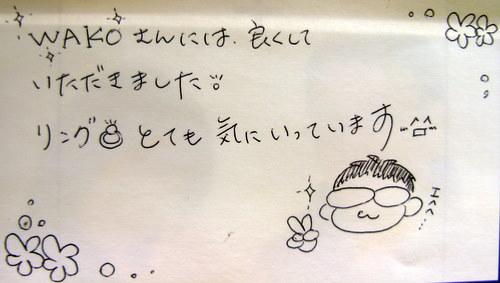 WAKOさんには、良くして
いただきました
リング とても 気にいっています
エヘヘ…